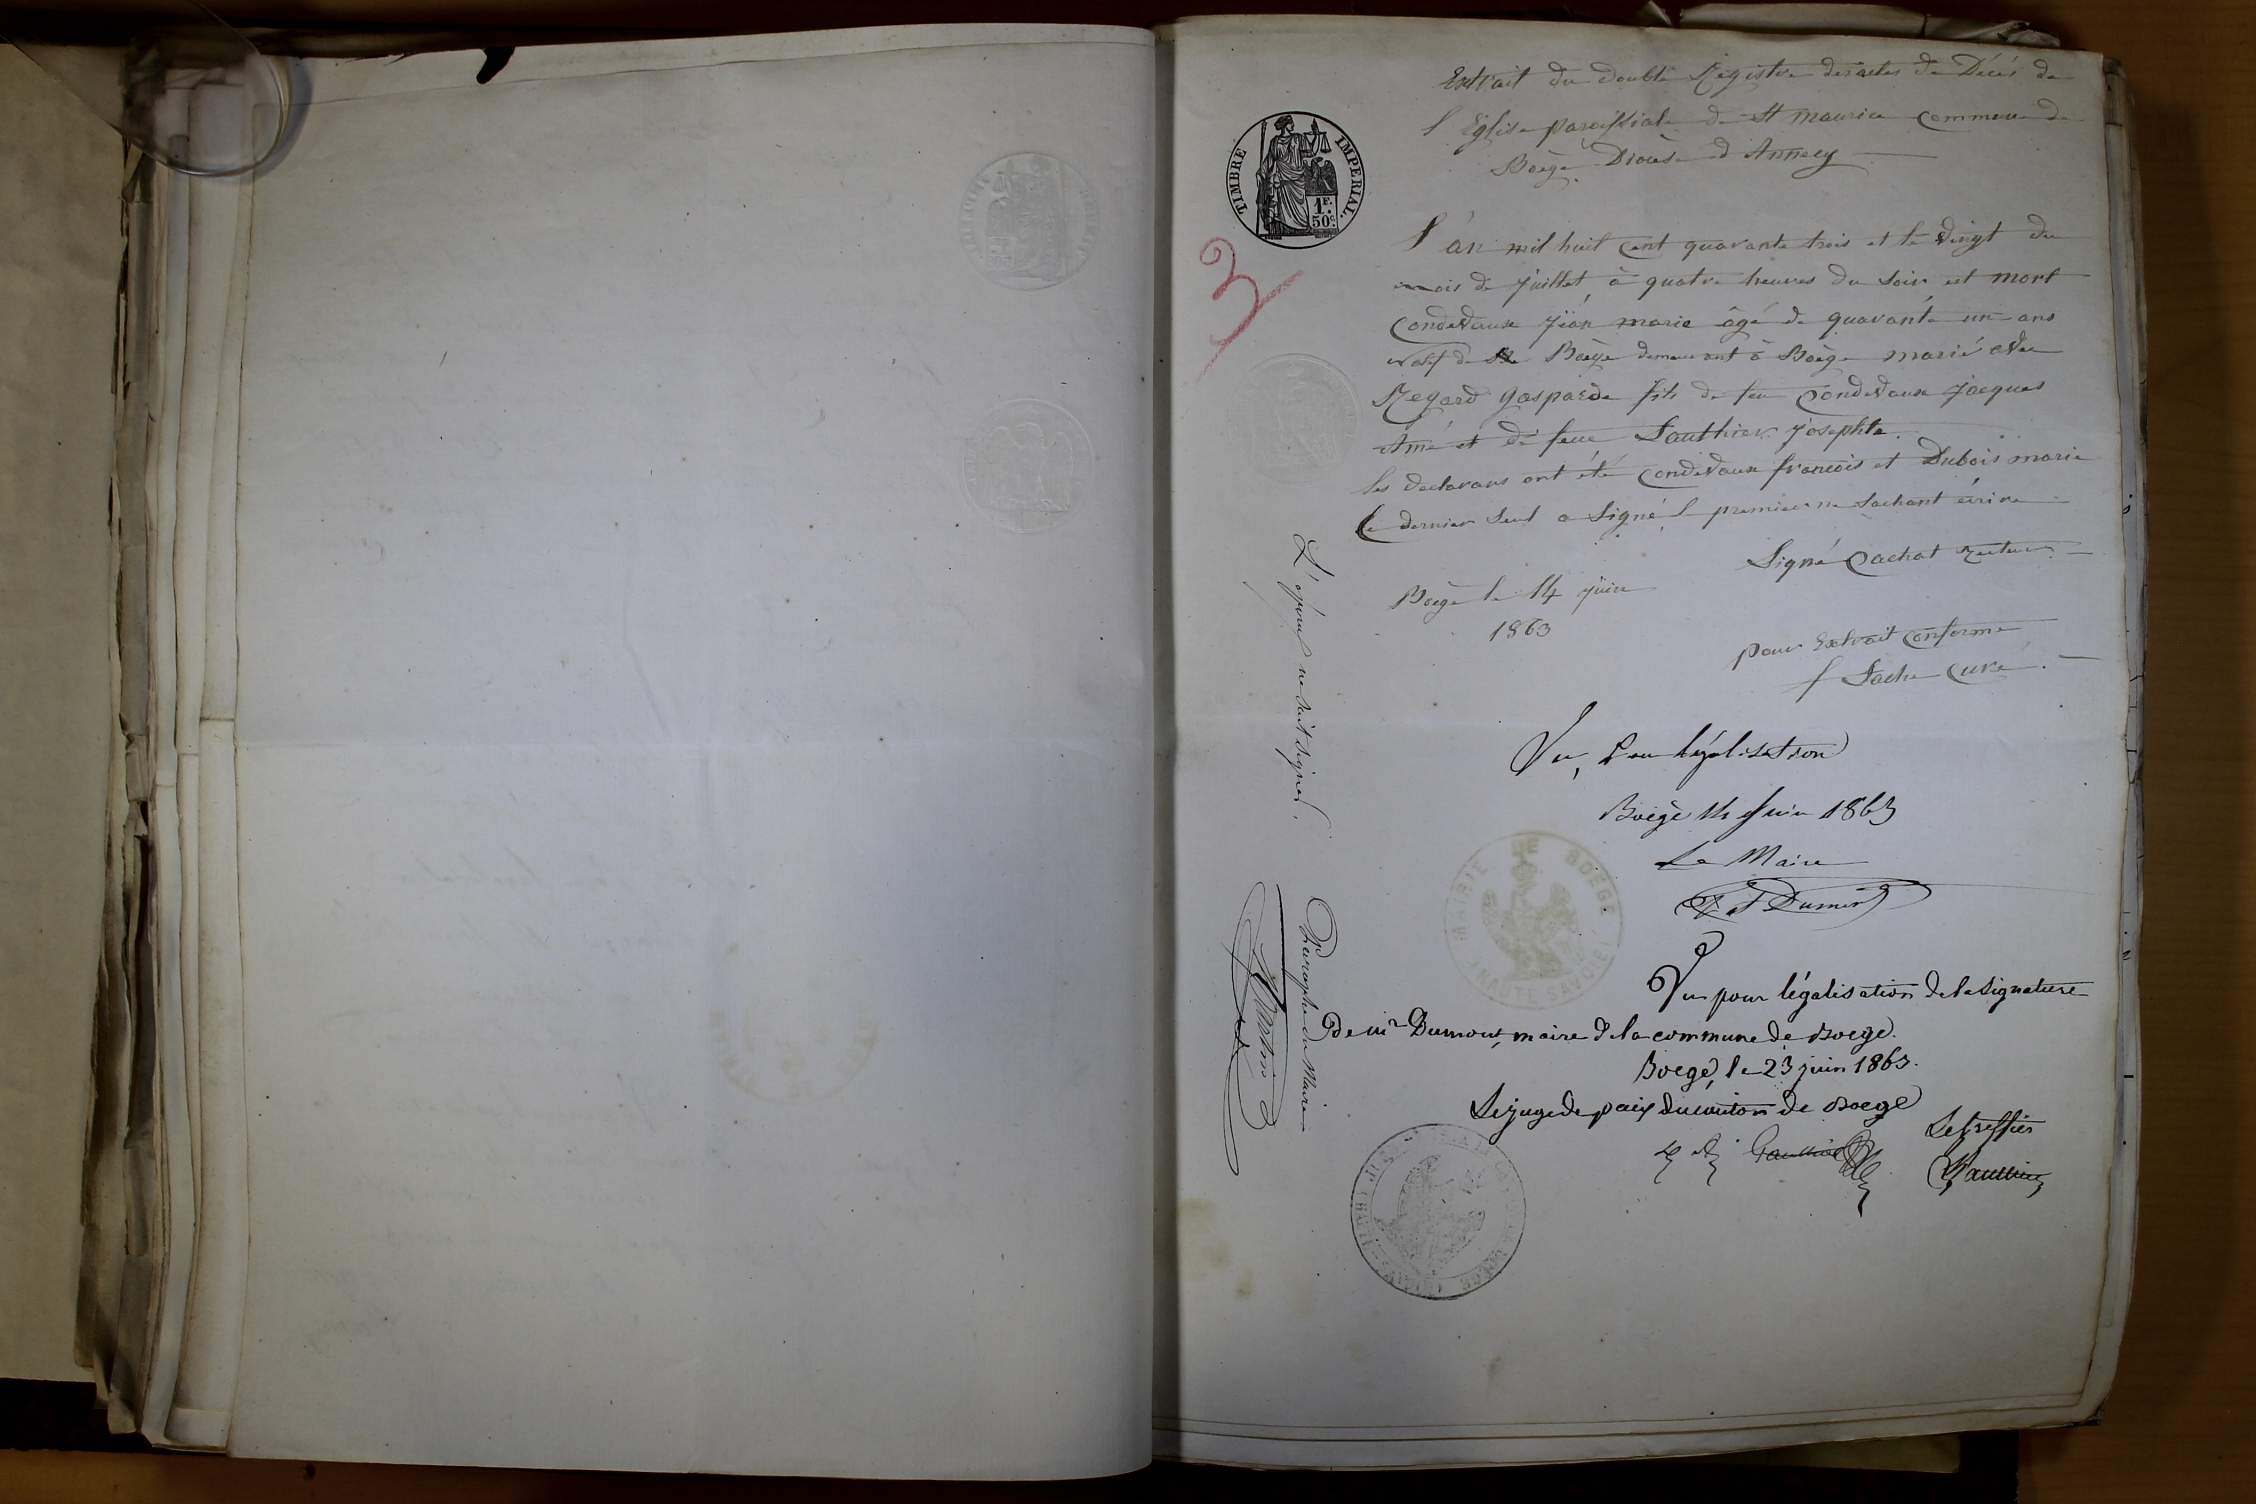 Extrait du double Registre des actes de Décés de
l'Eglise paroissiale de St maurice commune de
Boège Diocèse d'Annecy
TIMBRE IMPERIAL.
1F.
50c.
3
l'án mil huit cent quarante trois et le vingt du
mois de juillet, à quatre heures du soir est mort
Condevaux jean marie âgé de quarante un ans
natif de Boège demeurant à Boège marié avec
Regard gasparde fils de feu Condevaux jacques
Amé et de feue Fauthier josephte.
les declarans ont été Condevaux francois et Dubois marie
le dernier seul a signé l premier ne sachant écrire
Signé Cachat
Boège le 14 juin
1863
pour Extrait Conforme
Curé.
Vu, pour légalisation
Boëge 14 Juin 1863
Le Maire
Dumont
MAIRIE DE BOËGE
(HAUTE SAVOIE)
Vu pour légalisation de la signature
de mr Dumont, maire de la commune de Boege.
Boege, le 23 juin 1863.
Le juge de paix du canton de Boege
Le Greffier
L'époux ne sait signer.
Paraphe du Maire